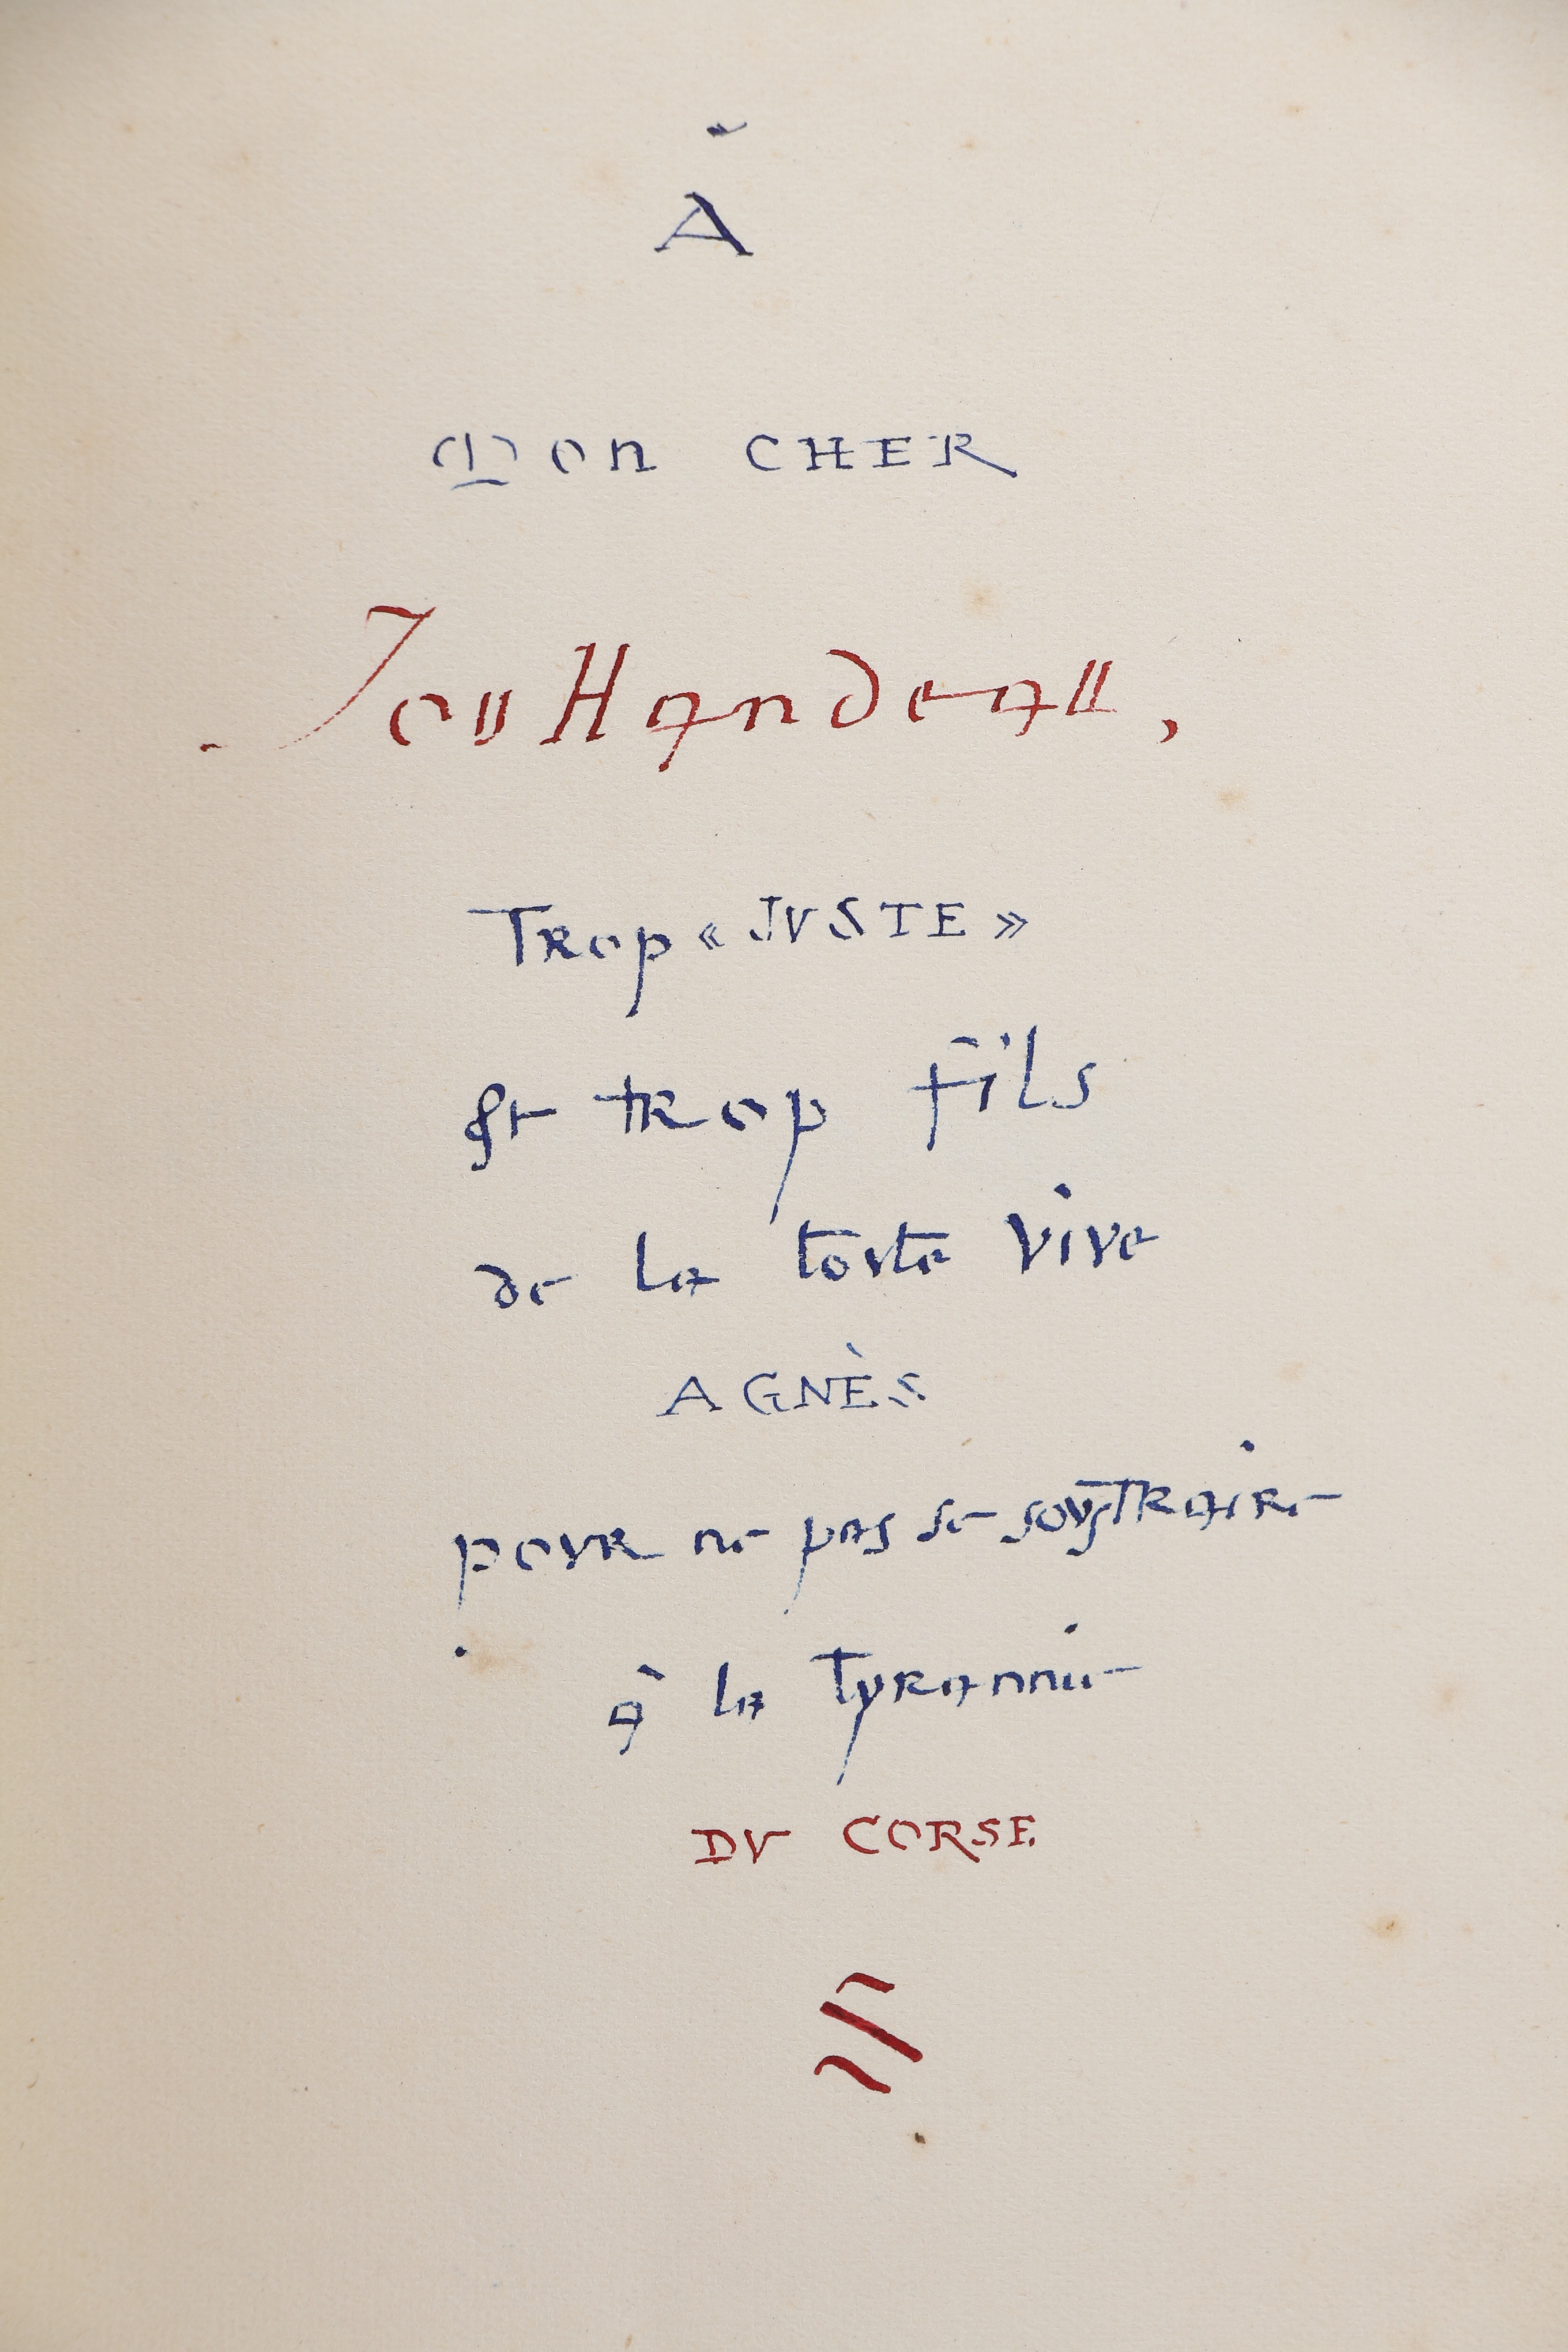 À
Mon CHER
JouHandeau,
Trop « JVSTE »
et trop fils
de la tovte vive
AGNÈS
povr ne pas se sovstraire
à la tyrannie
DV CORSE.